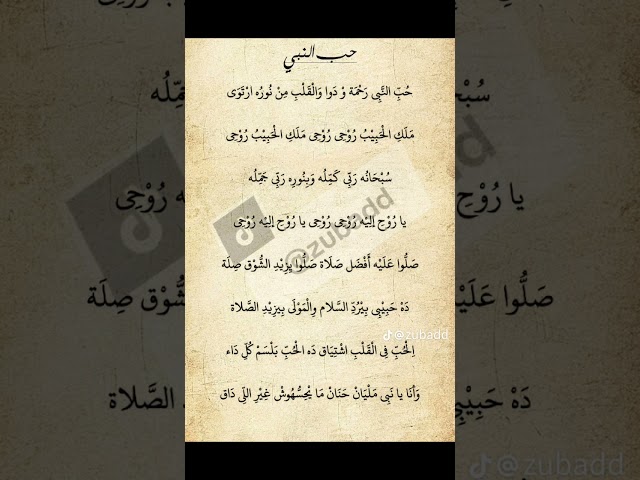 حب النبي
حُبِّ النَّبِى رَحْمَة وْ دَوا وَالْقَلْبِ مِنْ نُورُه ارْتَوَى
مَلَكِ الْحَبِيْبُ رُوْحِى رُوْحِى مَلَكِ الْحَبِيْبُ رُوْحِى
سُبْحَانُه رَبِّى كَمِّلُه وَبِنُورِه رَبِّى جَمِّلُه
يا رُوْح اِلَيْه رُوْحِى رُوْحِى يا رُوْح اِلَيْه رُوْحِى
صَلُّوا عَلَيْه أَفْضَل صَلَاة صَلُّوا يِزِيْدِ الشُّوْق صِلَة
دَهْ حَبِيْبِى بِيْرُدِّ السَّلام وِالْمَوْلَى بِيزِيْدِ الصَّلاة
اِلْحُبِّ فِى الْقَلْبِ اشْتِيَاق دَه الْحُبِّ بَلْسَمْ كُلِّ دَاء
وَأنَا يا نَبِى مَلْيَانْ حَنَانْ مَا يْحِسُّهُوشْ غِيْرِ اللِّى دَاق
@zubadd
@zubadd
@zubadd